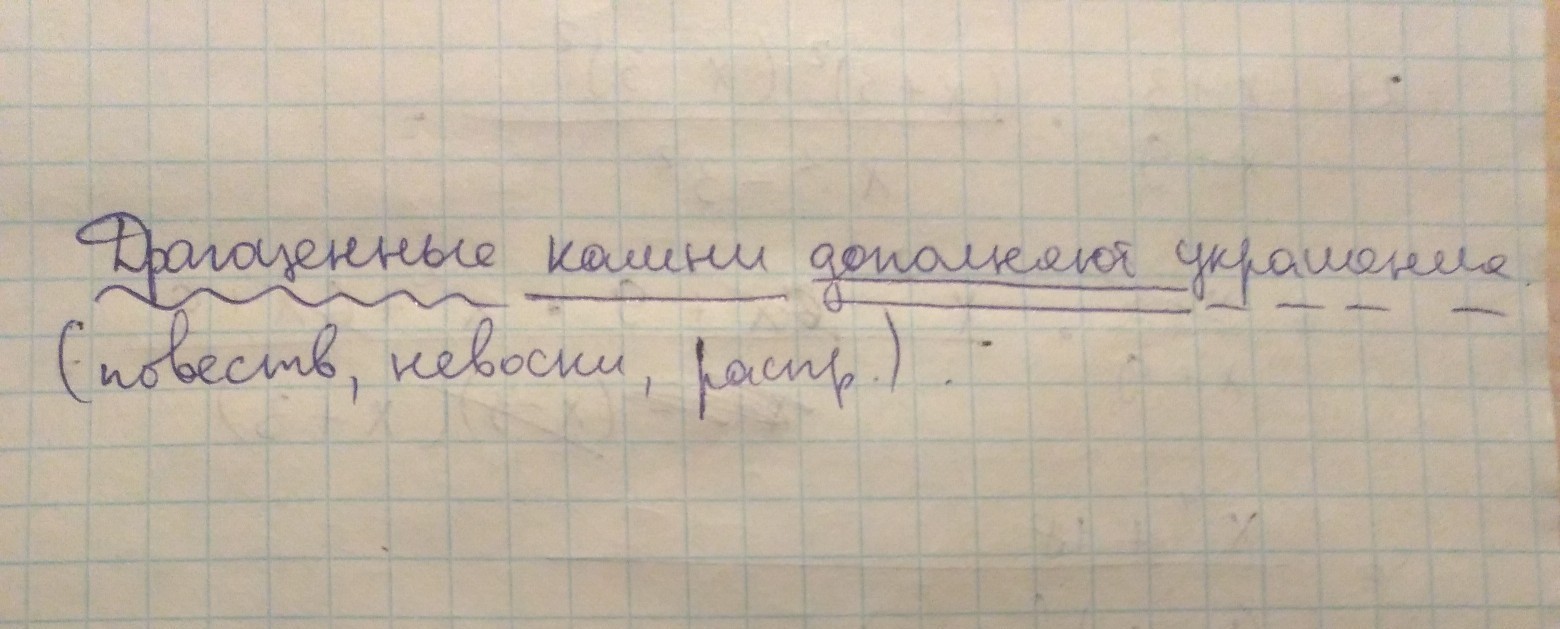 Драгоценные камни дополняют украшения.
(повеств, невоскл, распр.).